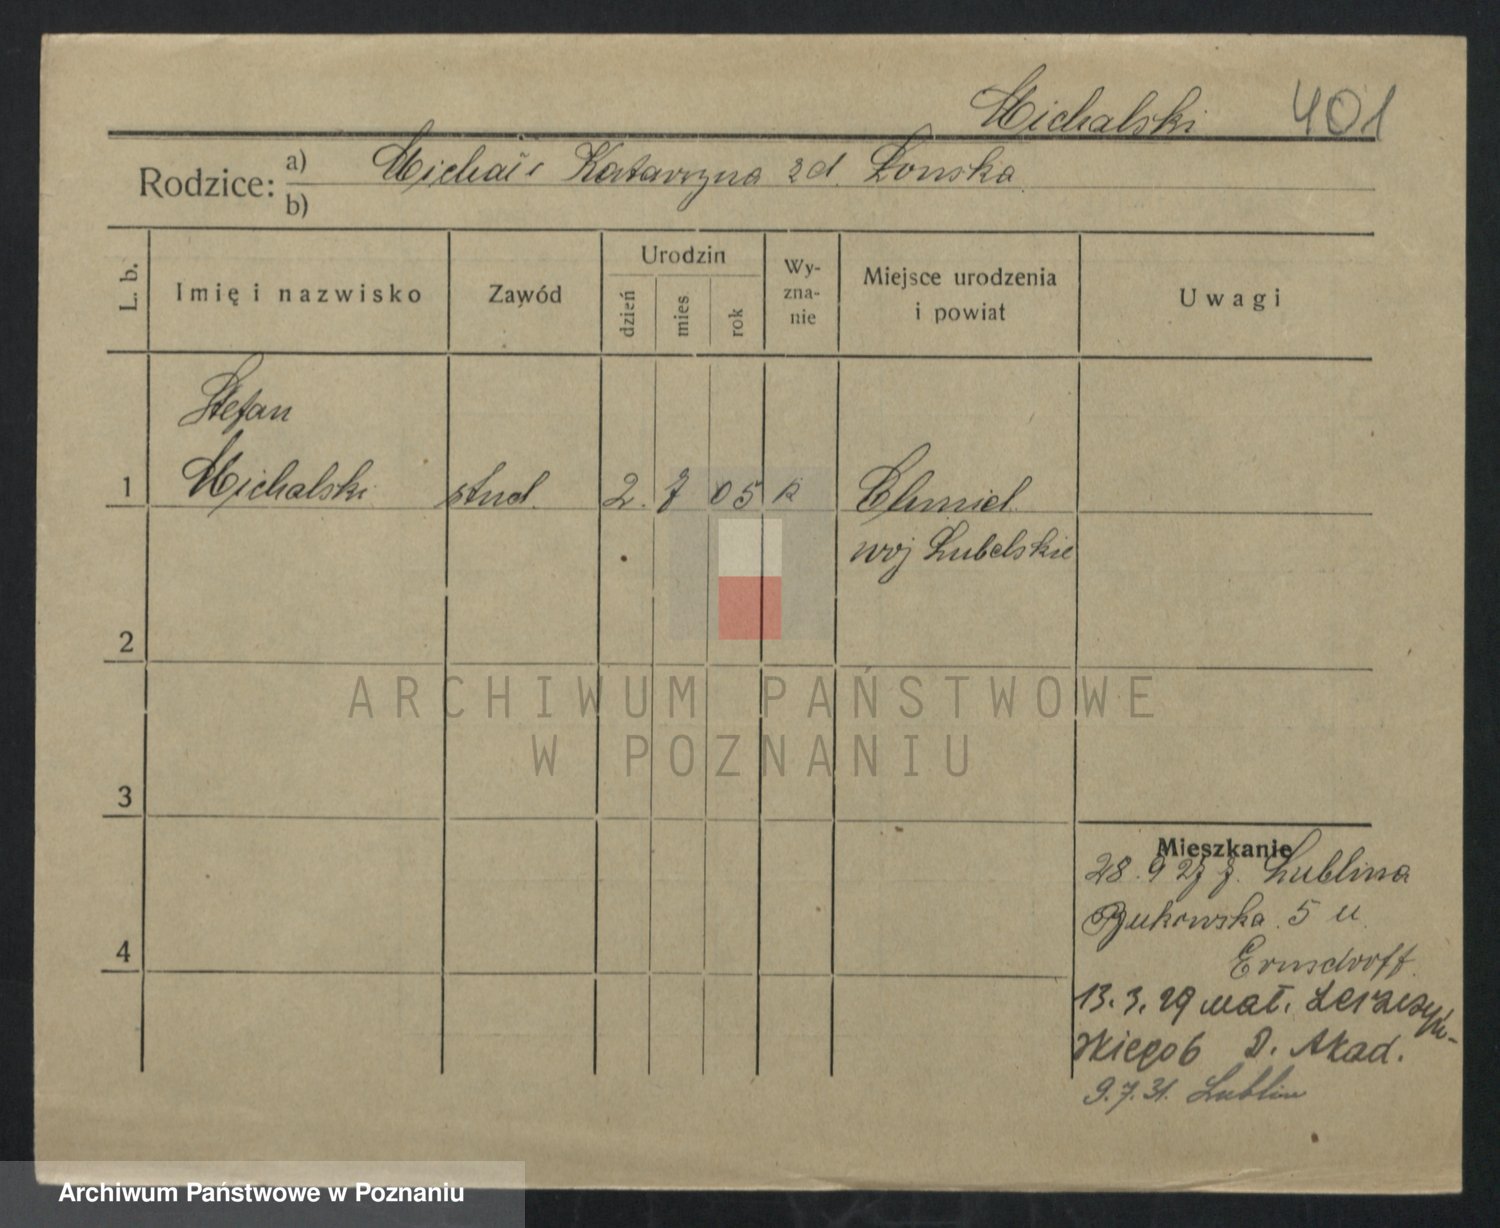 Michalski 401
Rodzice: a) Michał i Katarzyna zd. Łonska
b)
L. b. Imię i nazwisko Zawód Urodzin dzień mies rok Wy-zna-nie Miejsce urodzenia i powiat Uwagi
Stefan
1 Michalski stud. 2. 7 05 k Chmiel
woj Lubelskie
2
ARCHIWUM PAŃSTWOWE
W POZNANIU
3
Mieszkanie
28.9 27 z. Lublina
Bukowska 5 u
4
Ernsdorff
13.3.29 wał.
skiego 6 D. Akad.
9.7.31. Lublin
Archiwum Państwowe w Poznaniu